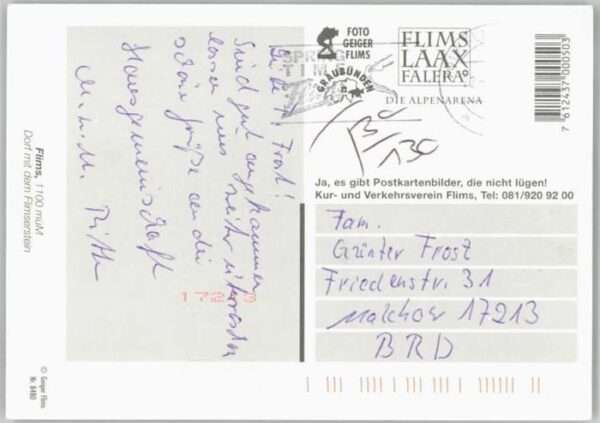 Liebe Fam. Frost!
Sind gut angekommen
lassen uns
schöne Grüße an die
Hausgemeinschaft
Flims, 1100 müM
Dorf mit dem Flimserstein
© Geiger Flims
Nr. 8480
FOTO
GEIGER
FLIMS
GRAUBÜNDEN
FLIMS
LAAX
FALERA
DIE ALPENARENA
7 612437 000503
130
Ja, es gibt Postkartenbilder, die nicht lügen!
Kur- und Verkehrsverein Flims, Tel: 081/920 92 00
Fam.
Günter Frost
Friedenstr. 31
Malchow 17213
BRD